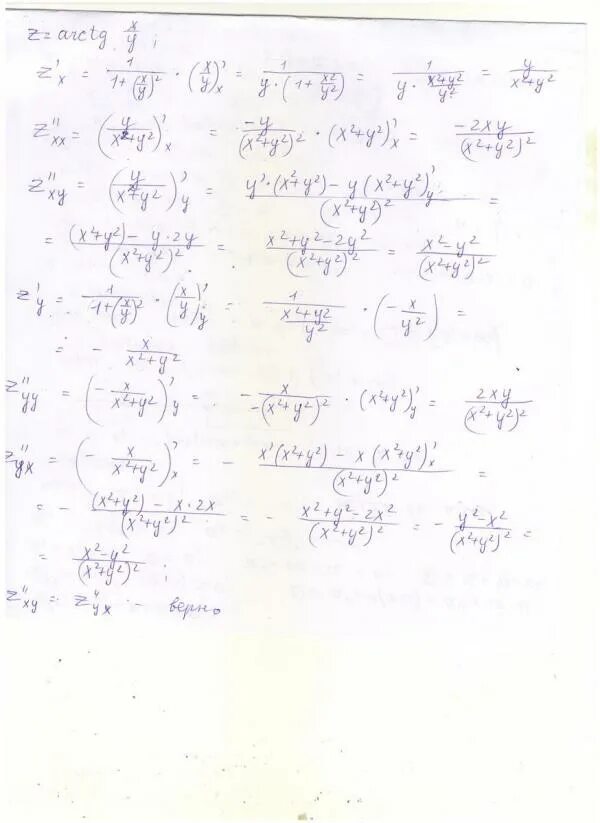 z = arctg x/y ;
z'x = 1/(1+(x/y)²) · (x/y)'x = 1/(y·(1+x²/y²)) = 1/(y·(x²+y²)/y²) = y/(x²+y²)
z''xx = (y/(x²+y²))'x = -y/(x²+y²)² · (x²+y²)'x = -2xy/(x²+y²)²
z''xy = (y/(x²+y²))'y = (y'·(x²+y²) - y(x²+y²)'y)/(x²+y²)² =
= ((x²+y²) - y·2y)/(x²+y²)² = (x²+y²-2y²)/(x²+y²)² = (x²-y²)/(x²+y²)²
z'y = 1/(1+(x/y)²) · (x/y)'y = 1/((x²+y²)/y²) · (-x/y²) =
= - x/(x²+y²)
z''yy = (-x/(x²+y²))'y = - x/(-(x²+y²)²) · (x²+y²)'y = 2xy/(x²+y²)²
z''yx = (- x/(x²+y²))'x = - (x'(x²+y²) - x(x²+y²)'x)/(x²+y²)² =
= - ((x²+y²) - x·2x)/(x²+y²)² = - (x²+y²-2x²)/(x²+y²)² = - (y²-x²)/(x²+y²)² =
= (x²-y²)/(x²+y²)² ;
z''xy = z''yx - верно